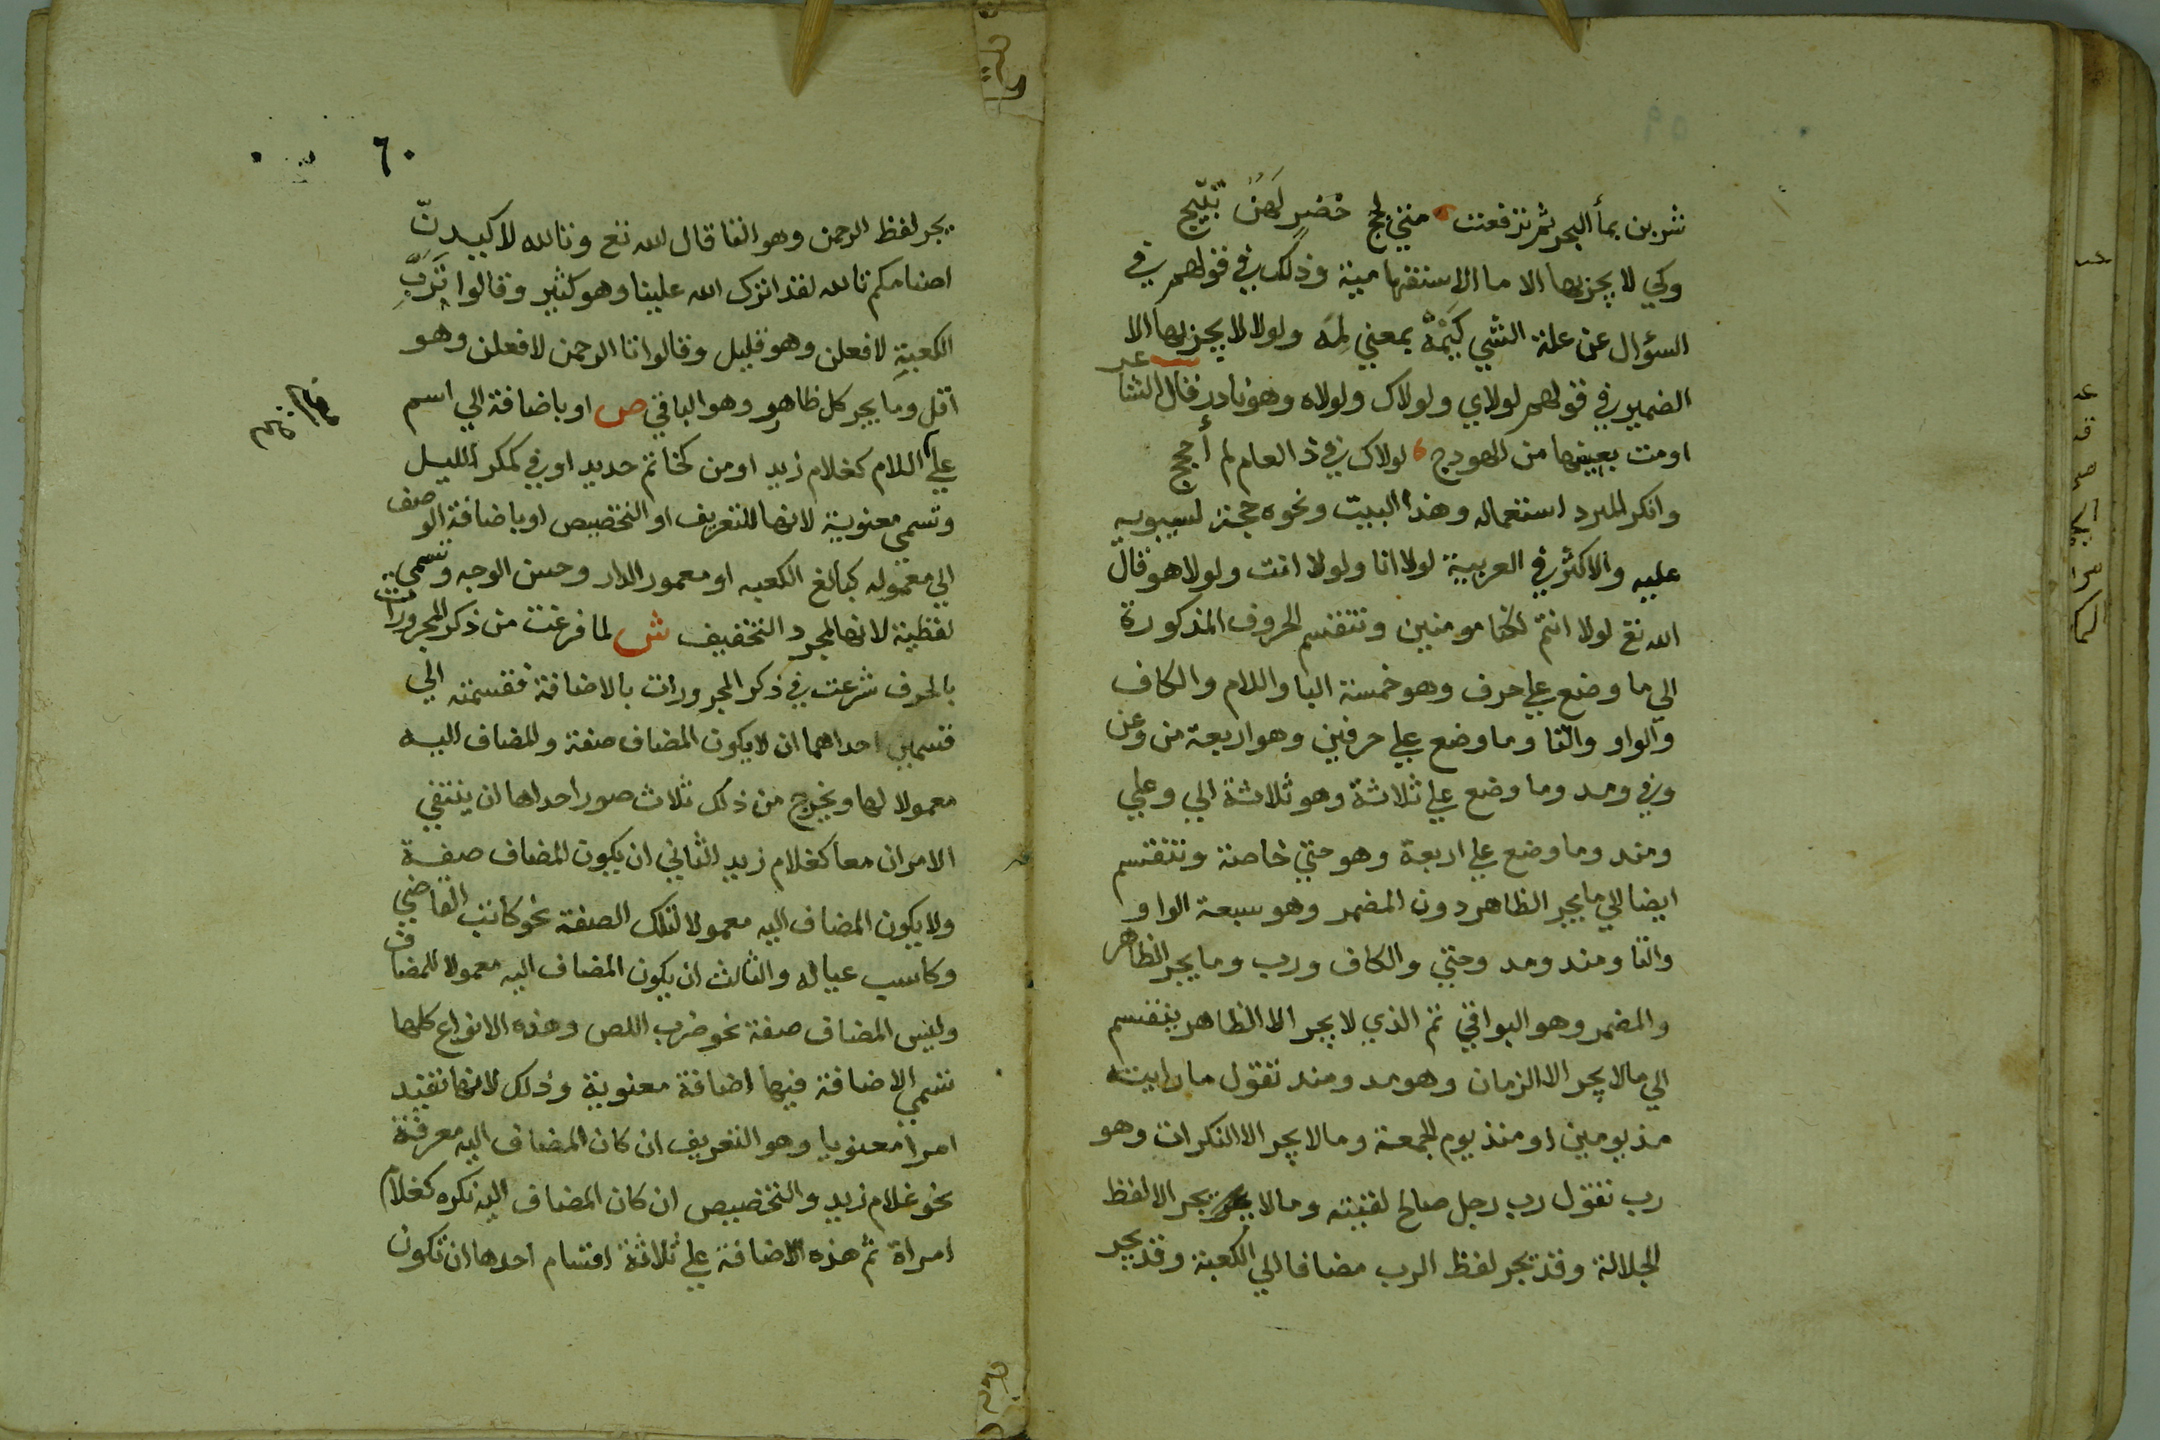 شربن بمأ البحر ثم ترفعت متي لجج خضرٍ لهنّ نئيج
وكي لا يجر بها الا ما الاستفهامية وذلك في قولهم في
السؤال عن علة الشي كَيْمَهْ بمعني لِمَه ولولا لا يجر بها الا
الضمير في قولهم لولاي ولولاك ولولاه وهو نادر قال الشاعر
اومت بعينها من الهودج لولاك في ذا العام لم أحجج
وانكر المبرد استعماله وهذا البيت ونحوه حجة لسيبويه
عليه والاكثر في العربية لولا انا ولولا انت ولولا هو قال
الله تع لولا انتم لكنا مومنين وتنقسم الحروف المذكورة
الي ما وضع علي حرف وهو خمسة البا واللام والكاف
والواو والتا وما وضع علي حرفين وهو اربعة من وعن
وفي ومد وما وضع علي ثلاثة وهو ثلاثة الي وعلي
ومند وما وضع علي اربعة وهو حتي خاصة وتنقسم
ايضا الي ما يجر الظاهر دون المضمر وهو سبعة الواو
والتا ومند ومد وحتي والكاف ورب وما يجر الظاهر
والمضمر وهو البواقي ثم الذي لا يجر الا الظاهر ينقسم
الي ما لا يجر الا الزمان وهو مد ومند تقول ما رايته
مذ يومين او منذ يوم الجمعة وما لا يجر الا النكرات وهو
رب تقول رب رجل صالح لقيته وما لا يجر الا لفظ
الجلالة وقد يجر لفظ الرب مضافا الي الكعبة وقد يجر
٦٠
يجر لفظ الرحمن وهو التا قال الله تع وتالله لاكيدنّ
اصنامكم تالله لقد اثرك الله علينا وهو كثير وقالوا تَرَبِّ
الكعبةِ لافعلن وهو قليل وقالوا تا الرحمن لافعلن وهو
اقل وما يجر كل ظاهر وهو الباقي ص او باضافة الي اسم
علي اللام كغلام زيد او من كخاتم حديد او في كمكر الليل
وتسمي معنوية لانها للتعريف او التخصيص او باضافة الوصف
الي معموله كبالغ الكعبه او معمور الدار وحسن الوجه وتسمي
لفظية لانها لمجرد التخفيف ش لما فرغت من ذكر المجرورات
بالحرف شرعت في ذكر المجرورات بالاضافة فقسمته الي
قسمين احداهما ان لا يكون المضاف صفة والمضاف اليه
معمولا لها ويخرج من ذلك ثلاث صور احداها ان ينتفي
الامران معا كغلام زيد الثاني ان يكون المضاف صفة
ولا يكون المضاف اليه معمولا لتلك الصفة نحو كاتب القاضي
وكاسب عياله والثالث ان يكون المضاف اليه معمولا للمضاف
وليس المضاف صفة نحو ضرب اللص وهذه الانواع كلها
تسمي الاضافة فيها اضافة معنوية وذلك لانها تفيد
امرا معنويا وهو التعريف ان كان المضاف اليه معرفة
نحو غلام زيد والتخصيص ان كان المضاف اليه نكره كغلام
امراة ثم هذه الاضافة علي ثلاثة اقسام احدها ان تكون